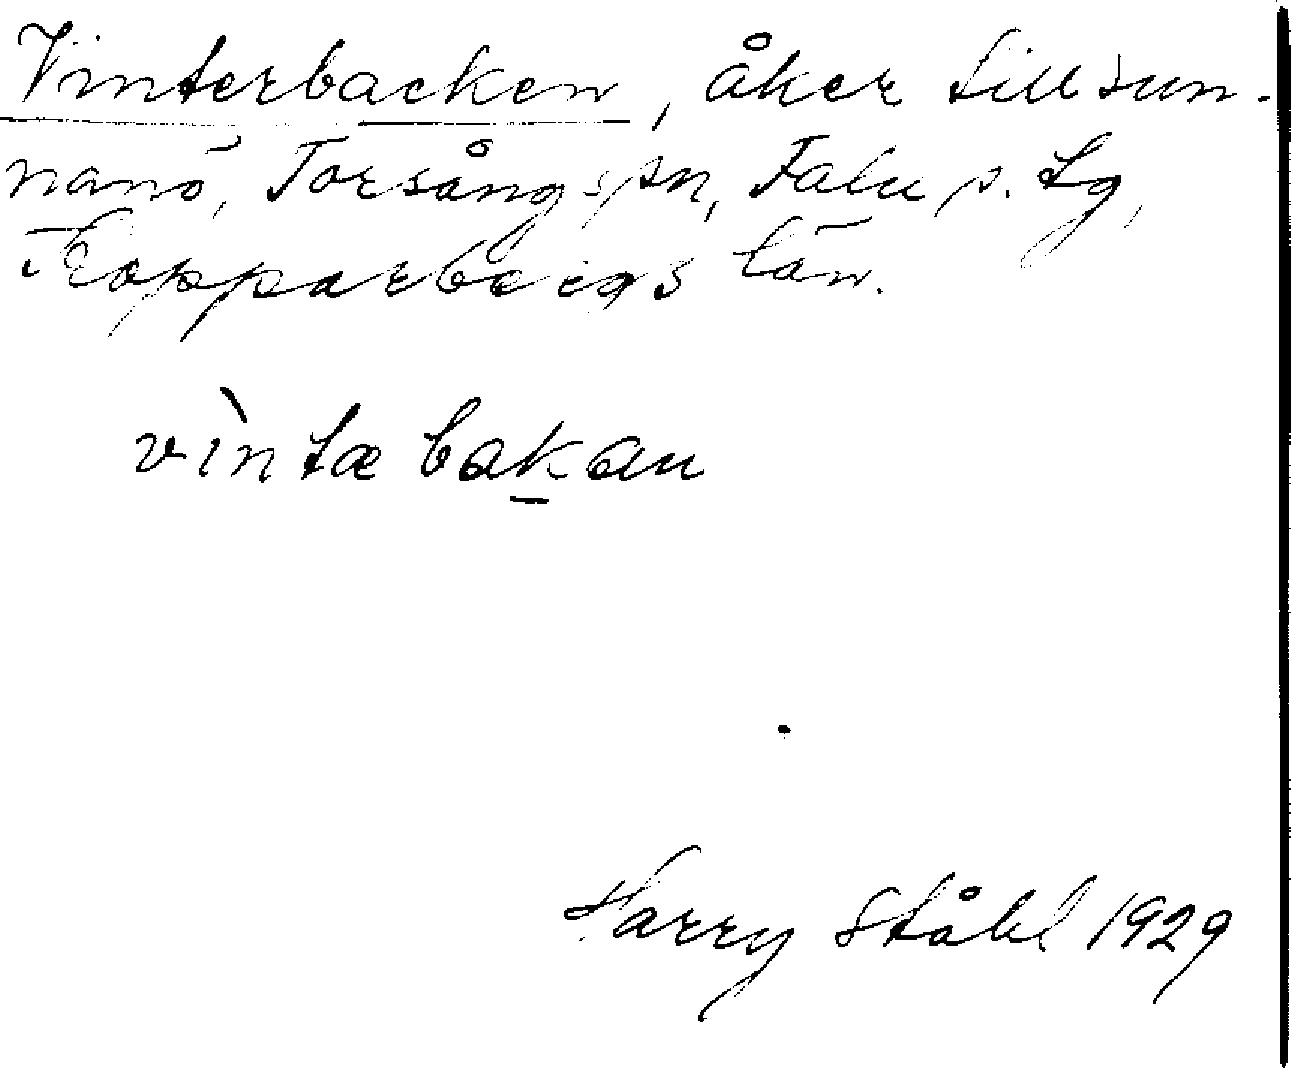 Vinterbacken, åker till Sun-
nanö, Torsångs sn, Falu s. tg,
Kopparbergs län.
vìntæbakan
Harry Ståhl 1929